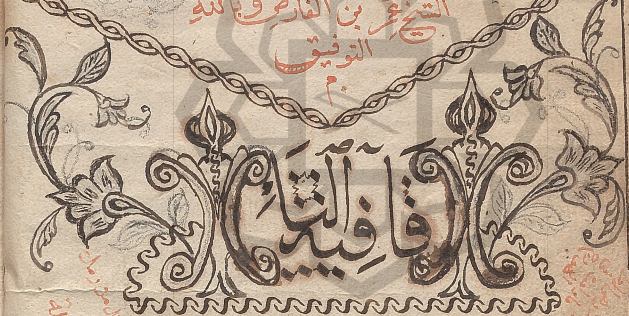 الشيخ عمر بن الفارض وبالله
التوفيق
م
قافية التاء